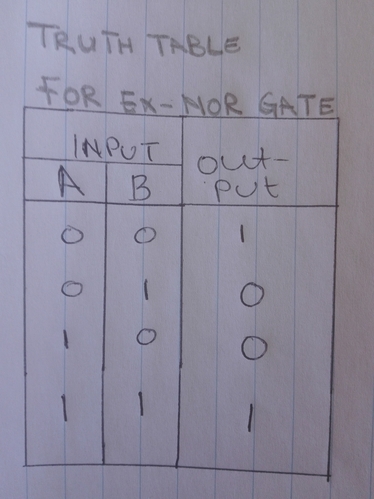 TRUTH TABLE
FOR EX-NOR GATE
INPUT
OUT-
PUT
A B
0 0 1
0 1 0
1 0 0
1 1 1